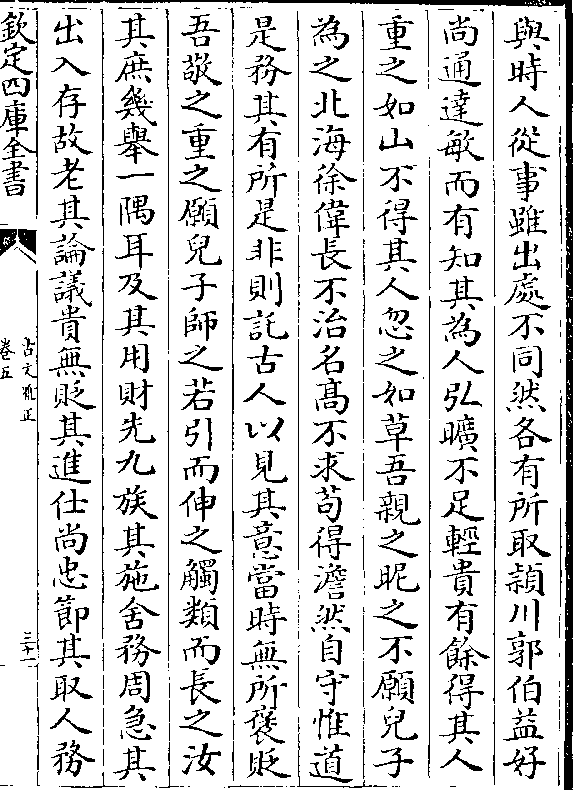 與時人從事雖出處不同然各有所取潁川郭伯益好
尚通達敏而有知其為人弘曠不足輕貴有餘得其人
重之如山不得其人忽之如草吾親之昵之不願兒子
為之北海徐偉長不治名髙不求苟得澹然自守惟道
是務其有所是非則託古人以見其意當時無所褒貶
吾敬之重之願兒子師之若引而伸之觸類而長之汝
其庶幾舉一隅耳及其用財先九族其施舍務周急其
出入存故老其論議貴無貶其進仕尚忠節其取人務
欽定四庫全書
古文雅正
卷五
三十一